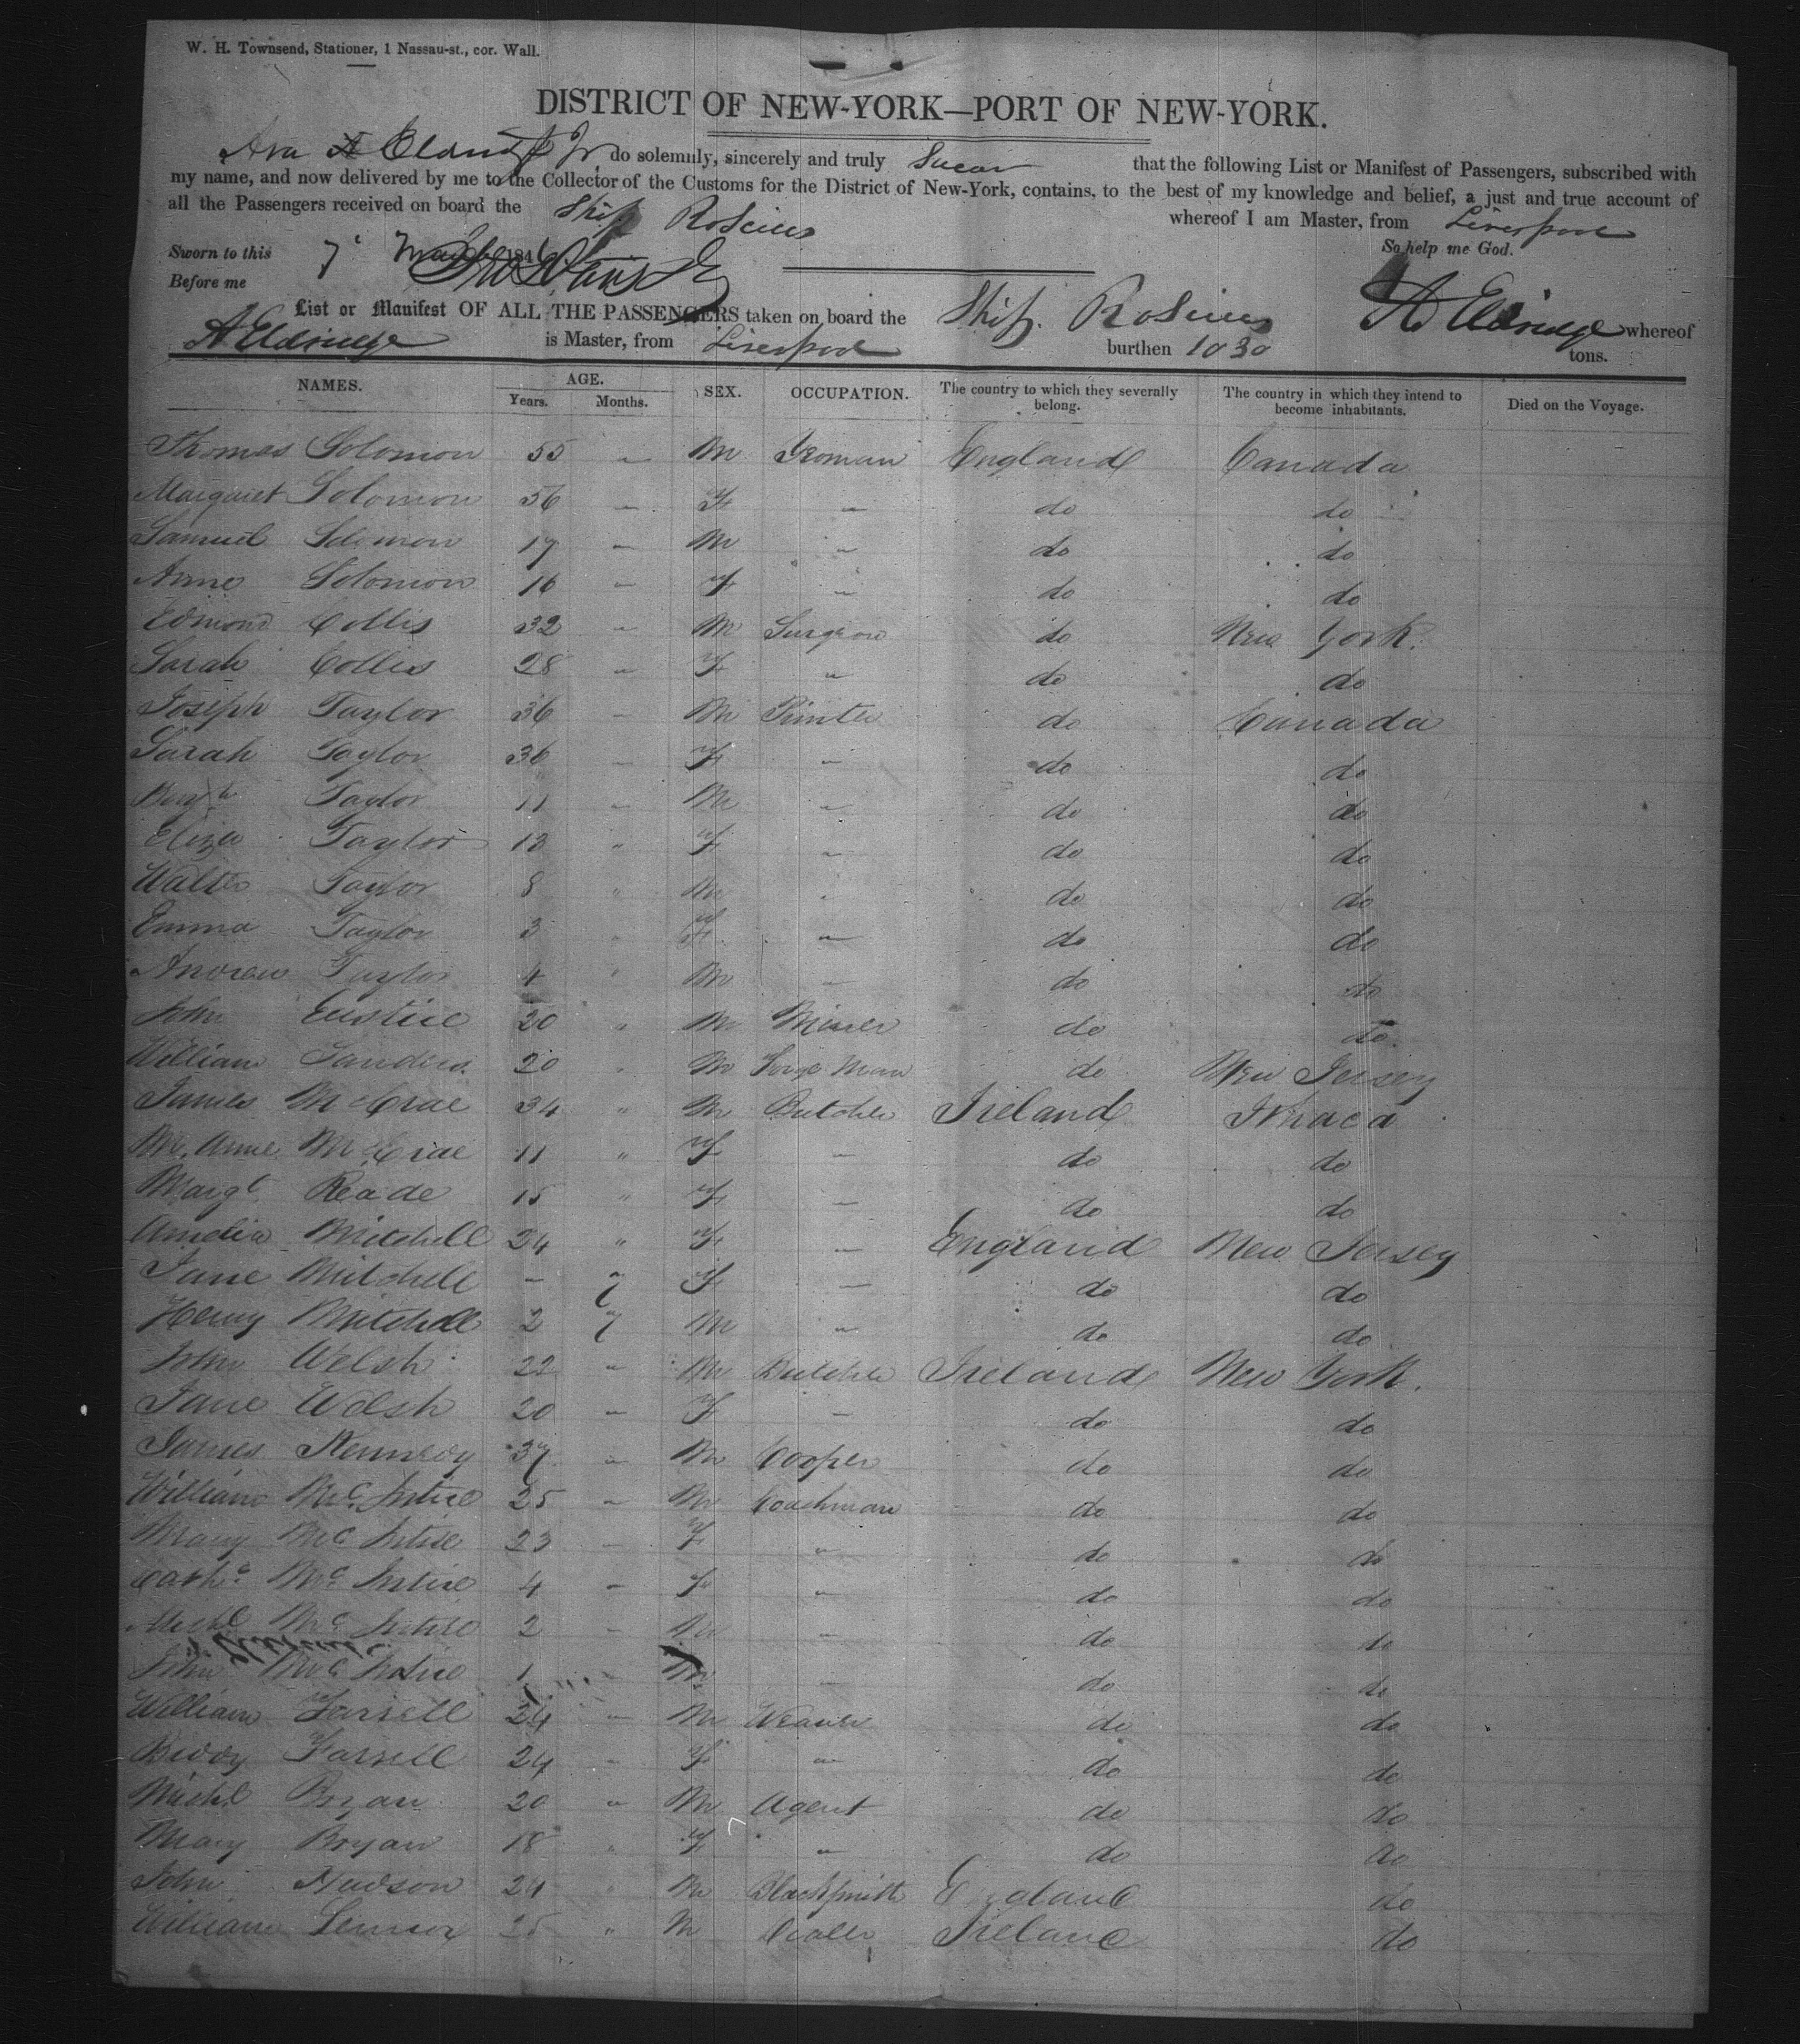 W. H. Townsend, Stationer, 1 Nassau-st., cor. Wall.
DISTRICT OF NEW-YORK—PORT OF NEW-YORK.
Asa A Eldridge Jr do solemnly, sincerely and truly Swear that the following List or Manifest of Passengers, subscribed with
my name, and now delivered by me to the Collector of the Customs for the District of New-York, contains, to the best of my knowledge and belief, a just and true account of
all the Passengers received on board the Ship Roscius whereof I am Master, from Liverpool
Sworn to this 7 March 1846 So help me God.
Before me
List or Manifest OF ALL THE PASSENGERS taken on board the Ship Roscius A Eldridge whereof
A Eldridge is Master, from Liverpool burthen 1030 tons.
NAMES. AGE. SEX. OCCUPATION. The country to which they severally belong. The country in which they intend to become inhabitants. Died on the Voyage.
Years. Months.
Thomas Solomon 55 " M Yeoman England Canada
Margaret Solomon 56 " F " do do
Samuel Solomon 17 " M " do do
Anne Solomon 16 " F " do do
Edmond Collis 32 " M Surgeon do New York.
Sarah Collis 28 " F " do do
Joseph Taylor 36 " M Printer do Canada
Sarah Taylor 36 " F " do do
Benjn Taylor 11 " M " do do
Eliza Taylor 13 " F " do do
Walter Taylor 8 " M " do do
Emma Taylor 3 " F " do do
Andrew Taylor 4 " M " do do
John Eustice 20 " M Miner do do
William Sanders 20 " M Forge Man do New Jersey
James McCrae 34 " M Butcher Ireland Ithaca
M. Anne McCrae 11 " F " do do
Margt Reade 15 " F " do do
Amelia Mitchell 24 " F " England New Jersey
Jane Mitchell - 7 F " do do
Henry Mitchell 2 7 M " do do
John Welsh 22 " M Butcher Ireland New York.
Jane Welsh 20 " F " do do
James Kennedy 37 " M Cooper do do
William McIntire 25 " M Coachman do do
Mary McIntire 23 " F " do do
Cathe McIntire 4 " F " do do
Michl McIntire 2 " M " do do
John McIntire 1 " M " do do
William Farrell 24 " M Weaver do do
Biddy Farrell 24 " F " do do
Michl Bryan 20 " M Agent do do
Mary Bryan 18 " F " do do
John Hudson 24 " M Blacksmith England do
William Lennox 25 " M Dealer Ireland do